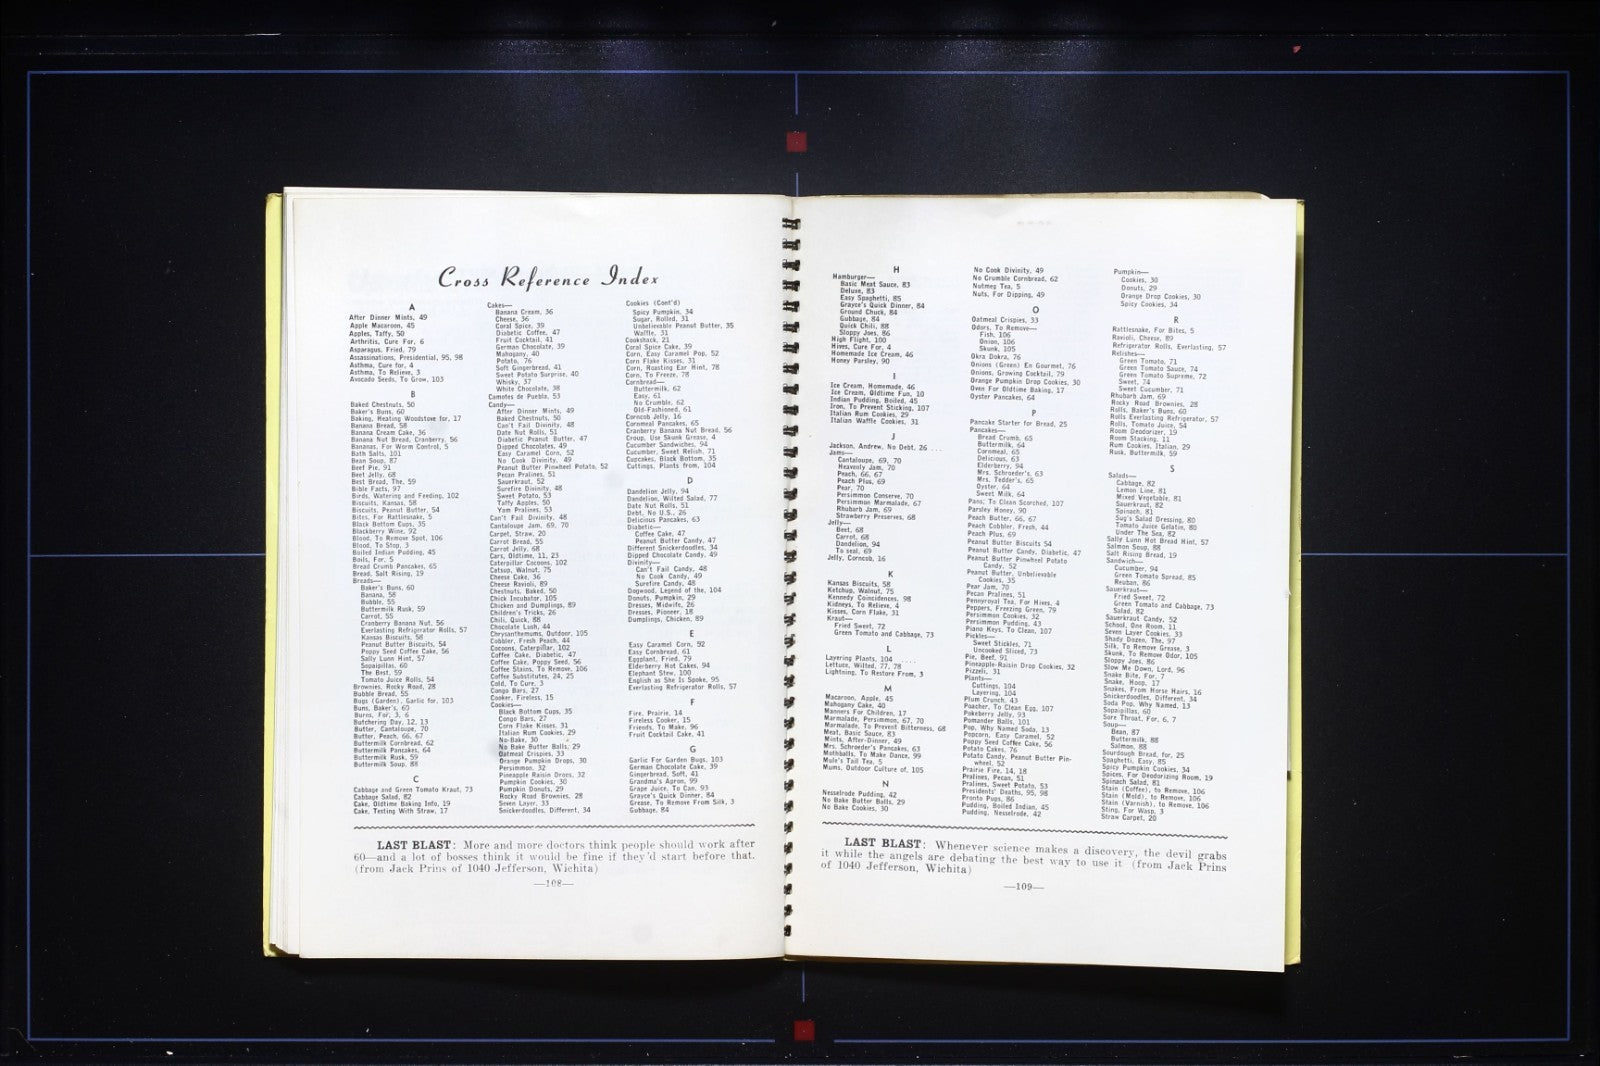 Cross Reference Index
A
After Dinner Mints, 49
Apple Macaroon, 45
Apples, Taffy, 50
Arthritis, Cure For, 6
Asparagus, Fried, 79
Assassinations, Presidential, 95, 98
Asthma, Cure for, 4
Asthma, To Relieve, 3
Avocado Seeds, To Grow, 103
B
Baked Chestnuts, 50
Baker's Buns, 60
Baking, Heating Woodstove for, 17
Banana Bread, 58
Banana Cream Cake, 36
Banana Nut Bread, Cranberry, 56
Bananas, For Worm Control, 5
Bath Salts, 101
Bean Soup, 87
Beef Pie, 91
Beet Jelly, 68
Best Bread, The, 59
Bible Facts, 97
Birds, Watering and Feeding, 102
Biscuits, Kansas, 58
Biscuits, Peanut Butter, 54
Bites, For Rattlesnake, 5
Black Bottom Cups, 35
Blackberry Wine, 92
Blood, To Remove Spot, 106
Blood, To Stop, 3
Boiled Indian Pudding, 45
Boils, For, 5
Bread Crumb Pancakes, 65
Bread, Salt Rising, 19
Breads—
Baker's Buns, 60
Banana, 58
Bubble, 55
Buttermilk Rusk, 59
Carrot, 55
Cranberry Banana Nut, 56
Everlasting Refrigerator Rolls, 57
Kansas Biscuits, 58
Peanut Butter Biscuits, 54
Poppy Seed Coffee Cake, 56
Sally Lunn Hint, 57
Sopaipillas, 60
The Best, 59
Tomato Juice Rolls, 54
Brownies, Rocky Road, 28
Bubble Bread, 55
Bugs (Garden), Garlic for, 103
Buns, Baker's, 60
Burns, For, 3, 6
Butchering Day, 12, 13
Butter, Cantaloupe, 70
Butter, Peach, 66, 67
Buttermilk Cornbread, 62
Buttermilk Pancakes, 64
Buttermilk Rusk, 59
Buttermilk Soup, 88
C
Cabbage and Green Tomato Kraut, 73
Cabbage Salad, 82
Cake, Oldtime Baking Info, 19
Cake, Testing With Straw, 17
Cakes—
Banana Cream, 36
Cheese, 36
Coral Spice, 39
Diabetic Coffee, 47
Fruit Cocktail, 41
German Chocolate, 39
Mahogany, 40
Potato, 76
Soft Gingerbread, 41
Sweet Potato Surprise, 40
Whisky, 37
White Chocolate, 38
Camotes de Puebla, 53
Candy—
After Dinner Mints, 49
Baked Chestnuts, 50
Can't Fail Divinity, 48
Date Nut Rolls, 51
Diabetic Peanut Butter, 47
Dipped Chocolates, 49
Easy Caramel Corn, 52
No Cook Divinity, 49
Peanut Butter Pinwheel Potato, 52
Pecan Pralines, 51
Sauerkraut, 52
Surefire Divinity, 48
Sweet Potato, 53
Taffy Apples, 50
Yam Pralines, 53
Can't Fail Divinity, 48
Cantaloupe Jam, 69, 70
Carpet, Straw, 20
Carrot Bread, 55
Carrot Jelly, 68
Cars, Oldtime, 11, 23
Caterpillar Cocoons, 102
Catsup, Walnut, 75
Cheese Cake, 36
Cheese Ravioli, 89
Chestnuts, Baked, 50
Chick Incubator, 105
Chicken and Dumplings, 89
Children's Tricks, 26
Chili, Quick, 88
Chocolate Lush, 44
Chrysanthemums, Outdoor, 105
Cobbler, Fresh Peach, 44
Cocoons, Caterpillar, 102
Coffee Cake, Diabetic, 47
Coffee Cake, Poppy Seed, 56
Coffee Stains, To Remove, 106
Coffee Substitutes, 24, 25
Cold, To Cure, 3
Congo Bars, 27
Cooker, Fireless, 15
Cookies—
Black Bottom Cups, 35
Congo Bars, 27
Corn Flake Kisses, 31
Italian Rum Cookies, 29
No-Bake, 30
No Bake Butter Balls, 29
Oatmeal Crispies, 33
Orange Pumpkin Drops, 30
Persimmon, 32
Pineapple Raisin Drops, 32
Pumpkin Cookies, 30
Pumpkin Donuts, 29
Rocky Road Brownies, 28
Seven Layer, 33
Snickerdoodles, Different, 34
Cookies (Cont'd)
Spicy Pumpkin, 34
Sugar, Rolled, 31
Unbelievable Peanut Butter, 35
Waffle, 31
Cookshack, 21
Coral Spice Cake, 39
Corn, Easy Caramel Pop, 52
Corn Flake Kisses, 31
Corn, Roasting Ear Hint, 78
Corn, To Freeze, 78
Cornbread—
Buttermilk, 62
Easy, 61
No Crumble, 62
Old-Fashioned, 61
Corncob Jelly, 16
Cornmeal Pancakes, 65
Cranberry Banana Nut Bread, 56
Croup, Use Skunk Grease, 4
Cucumber Sandwiches, 94
Cucumber, Sweet Relish, 71
Cupcakes, Black Bottom, 35
Cuttings, Plants from, 104
D
Dandelion Jelly, 94
Dandelion, Wilted Salad, 77
Date Nut Rolls, 51
Debt, No U.S., 26
Delicious Pancakes, 63
Diabetic—
Coffee Cake, 47
Peanut Butter Candy, 47
Different Snickerdoodles, 34
Dipped Chocolate Candy, 49
Divinity—
Can't Fail Candy, 48
No Cook Candy, 49
Surefire Candy, 48
Dogwood, Legend of the, 104
Donuts, Pumpkin, 29
Dresses, Midwife, 26
Dresses, Pioneer, 18
Dumplings, Chicken, 89
E
Easy Caramel Corn, 52
Easy Cornbread, 61
Eggplant, Fried, 79
Elderberry Hot Cakes, 94
Elephant Stew, 100
English as She Is Spoke, 95
Everlasting Refrigerator Rolls, 57
F
Fire, Prairie, 14
Fireless Cooker, 15
Friends, To Make, 96
Fruit Cocktail Cake, 41
G
Garlic For Garden Bugs, 103
German Chocolate Cake, 39
Gingerbread, Soft, 41
Grandma's Apron, 99
Grape Juice, To Can, 93
Grayce's Quick Dinner, 84
Grease, To Remove From Silk, 3
Gubbage, 84
LAST BLAST: More and more doctors think people should work after
60—and a lot of bosses think it would be fine if they'd start before that.
(from Jack Prins of 1040 Jefferson, Wichita)
—108—
H
Hamburger—
Basic Meat Sauce, 83
Deluxe, 83
Easy Spaghetti, 85
Grayce's Quick Dinner, 84
Ground Chuck, 84
Gubbage, 84
Quick Chili, 88
Sloppy Joes, 86
High Flight, 100
Hives, Cure For, 4
Homemade Ice Cream, 46
Honey Parsley, 90
I
Ice Cream, Homemade, 46
Ice Cream, Oldtime Fun, 10
Indian Pudding, Boiled, 45
Iron, To Prevent Sticking, 107
Italian Rum Cookies, 29
Italian Waffle Cookies, 31
J
Jackson, Andrew, No Debt, 26 ...
Jams—
Cantaloupe, 69, 70
Heavenly Jam, 70
Peach, 66, 67
Peach Plus, 69
Pear, 70
Persimmon Conserve, 70
Persimmon Marmalade, 67
Rhubarb Jam, 69
Strawberry Preserves, 68
Jelly—
Beet, 68
Carrot, 68
Dandelion, 94
To seal, 69
Jelly, Corncob, 16
K
Kansas Biscuits, 58
Ketchup, Walnut, 75
Kennedy Coincidences, 98
Kidneys, To Relieve, 4
Kisses, Corn Flake, 31
Kraut—
Fried Sweet, 72
Green Tomato and Cabbage, 73
L
Layering Plants, 104 ....
Lettuce, Wilted, 77, 78
Lightning, To Restore From, 3
M
Macaroon, Apple, 45
Mahogany Cake, 40
Manners For Children, 17
Marmalade, Persimmon, 67, 70
Marmalade, To Prevent Bitterness, 68
Meat, Basic Sauce, 83
Mints, After-Dinner, 49
Mrs. Schroeder's Pancakes, 63
Mothballs, To Make Dance, 99
Mule's Tail Tea, 5
Mums, Outdoor Culture of, 105
N
Nesselrode Pudding, 42
No Bake Butter Balls, 29
No Bake Cookies, 30
No Cook Divinity, 49
No Crumble Cornbread, 62
Nutmeg Tea, 5
Nuts, For Dipping, 49
O
Oatmeal Crispies, 33
Odors, To Remove—
Fish, 106
Onion, 106
Skunk, 105
Okra Dokra, 76
Onions (Green) En Gourmet, 76
Onions, Growing Cocktail, 79
Orange Pumpkin Drop Cookies, 30
Oven For Oldtime Baking, 17
Oyster Pancakes, 64
P
Pancake Starter for Bread, 25
Pancakes—
Bread Crumb, 65
Buttermilk, 64
Cornmeal, 65
Delicious, 63
Elderberry, 94
Mrs. Schroeder's, 63
Mrs. Tedder's, 65
Oyster, 64
Sweet Milk, 64
Pans, To Clean Scorched, 107
Parsley Honey, 90
Peach Butter, 66, 67
Peach Cobbler, Fresh, 44
Peach Plus, 69
Peanut Butter Biscuits 54
Peanut Butter Candy, Diabetic, 47
Peanut Butter Pinwheel Potato
Candy, 52
Peanut Butter, Unbelievable
Cookies, 35
Pear Jam, 70
Pecan Pralines, 51
Pennyroyal Tea, For Hives, 4
Peppers, Freezing Green, 79
Persimmon Cookies, 32
Persimmon Pudding, 43
Piano Keys, To Clean, 107
Pickles—
Sweet Stickles, 71
Uncooked Sliced, 73
Pie, Beef, 91
Pineapple-Raisin Drop Cookies, 32
Pizzeli, 31
Plants—
Cuttings, 104
Layering, 104
Plum Crunch, 43
Poacher, To Clean Egg, 107
Pokeberry Jelly, 93
Pomander Balls, 101
Pop, Why Named Soda, 13
Popcorn, Easy Caramel, 52
Poppy Seed Coffee Cake, 56
Potato Cakes, 76
Potato Candy, Peanut Butter Pin-
wheel, 52
Prairie Fire, 14, 18
Pralines, Pecan, 51
Pralines, Sweet Potato, 53
Presidents' Deaths, 95, 98
Pronto Pups, 86
Pudding, Boiled Indian, 45
Pudding, Nesselrode, 42
Pumpkin—
Cookies, 30
Donuts, 29
Orange Drop Cookies, 30
Spicy Cookies, 34
R
Rattlesnake, For Bites, 5
Ravioli, Cheese, 89
Refrigerator Rolls, Everlasting, 57
Relishes—
Green Tomato, 71
Green Tomato Sauce, 74
Green Tomato Supreme, 72
Sweet, 74
Sweet Cucumber, 71
Rhubarb Jam, 69
Rocky Road Brownies, 28
Rolls, Baker's Buns, 60
Rolls Everlasting Refrigerator, 57
Rolls, Tomato Juice, 54
Room Deodorizer, 19
Room Stacking, 11
Rum Cookies, Italian, 29
Rusk, Buttermilk, 59
S
Salads—
Cabbage, 82
Lemon Lime, 81
Mixed Vegetable, 81
Sauerkraut, 82
Spinach, 81
Sug's Salad Dressing, 80
Tomato Juice Gelatin, 80
Under The Sea, 82
Sally Lunn Hot Bread Hint, 57
Salmon Soup, 88
Salt Rising Bread, 19
Sandwich—
Cucumber, 94
Green Tomato Spread, 85
Reuban, 86
Sauerkraut—
Fried Sweet, 72
Green Tomato and Cabbage, 73
Salad, 82
Sauerkraut Candy, 52
School, One Room, 11
Seven Layer Cookies, 33
Shady Dozen, The, 97
Silk, To Remove Grease, 3
Skunk, To Remove Odor, 105
Sloppy Joes, 86
Slow Me Down, Lord, 96
Snake Bite, For, 7
Snake, Hoop, 17
Snakes, From Horse Hairs, 16
Snickerdoodles, Different, 34
Soda Pop, Why Named, 13
Sopaipillas, 60
Sore Throat, For, 6, 7
Soup—
Bean, 87
Buttermilk, 88
Salmon, 88
Sourdough Bread, for, 25
Spaghetti, Easy, 85
Spicy Pumpkin Cookies, 34
Spices, For Deodorizing Room, 19
Spinach Salad, 81
Stain (Coffee), to Remove, 106
Stain (Mold), to Remove, 106
Stain (Varnish), to Remove, 106
Sting, For Wasp, 3
Straw Carpet, 20
LAST BLAST: Whenever science makes a discovery, the devil grabs
it while the angels are debating the best way to use it (from Jack Prins
of 1040 Jefferson, Wichita)
—109—